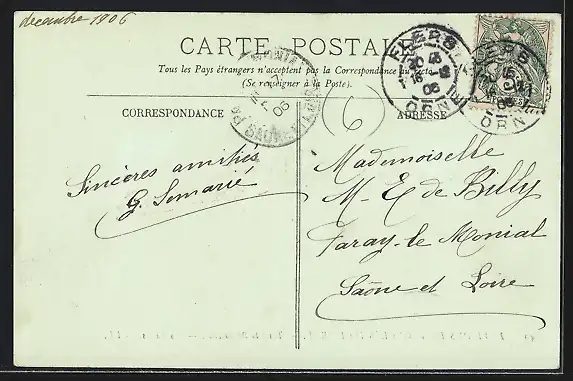 decembre 1906
CARTE POSTALE
Tous les Pays étrangers n'acceptent pas la Correspondance au recto
(Se renseigner à la Poste).
CORRESPONDANCE
ADRESSE
FLERS
ORNE
FLERS
ORNE
6
Sincères amitiés
G. Semarié
Mademoiselle
M. E. de Billy
Paray-le Monial
Saône et Loire